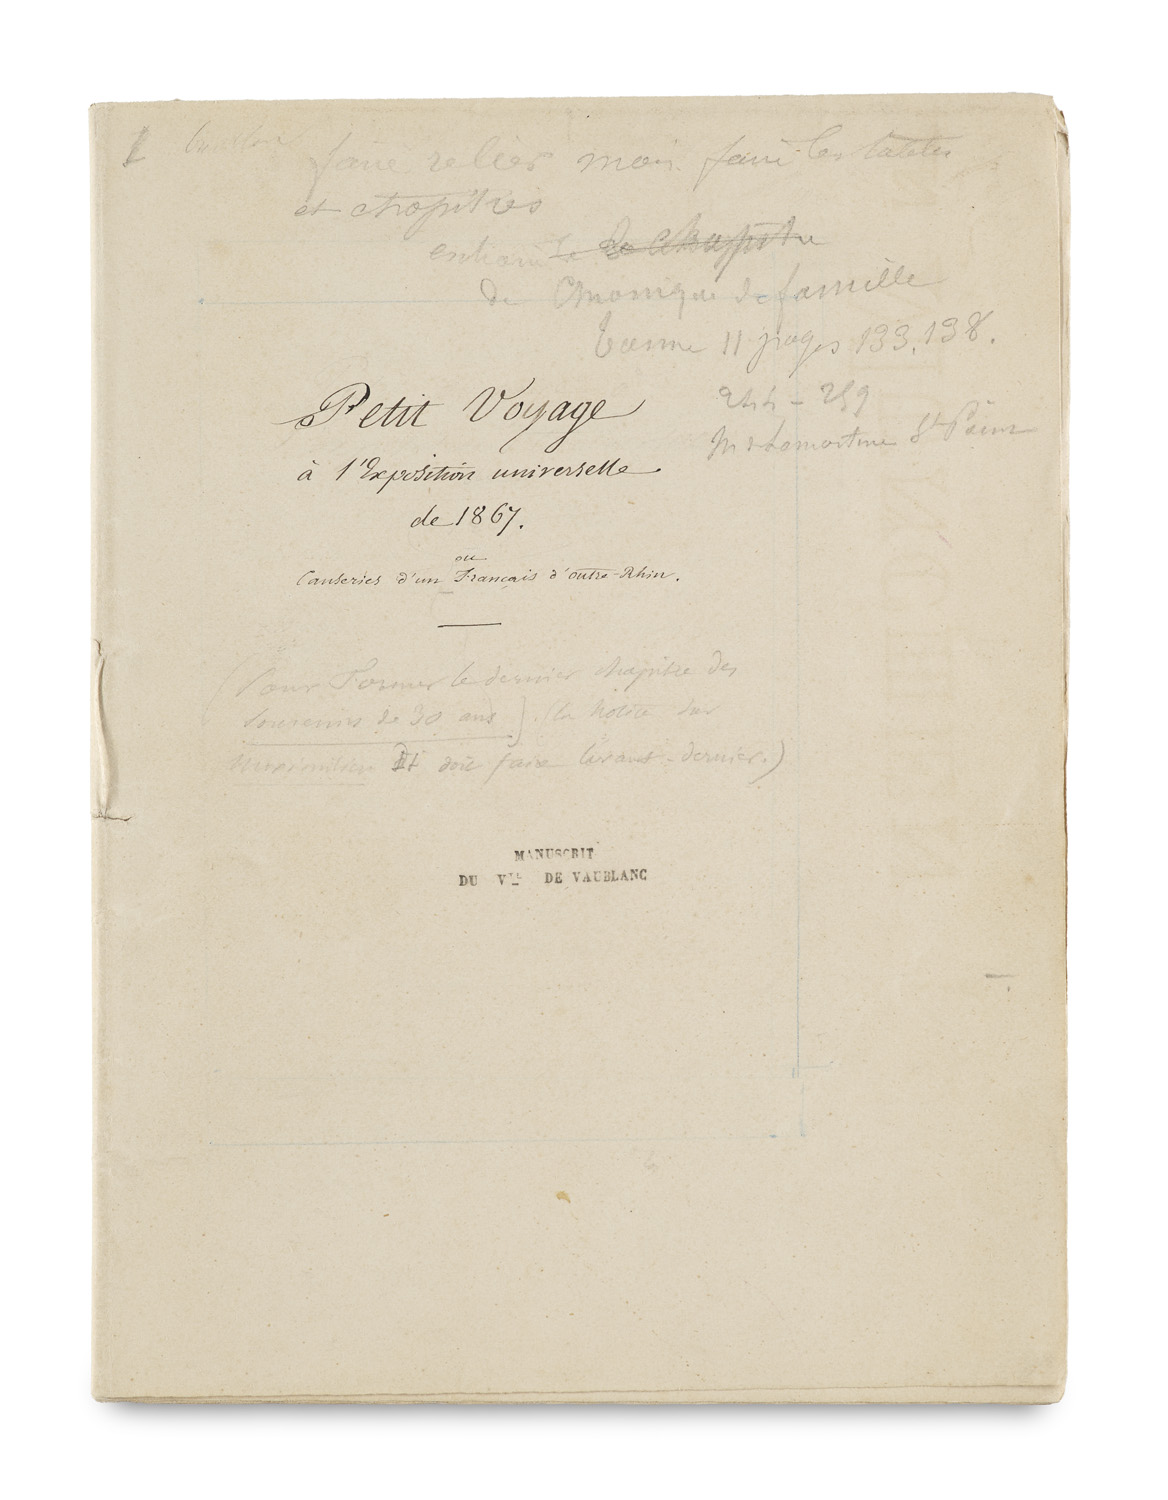 faire relier mais faire les tables
et chapitres
de Chronique de famille
Tome 11 pages 133, 138.
244 - 259
Petit Voyage
à l'Exposition universelle
de 1867.
ou
Causeries d'un Français d'outre-Rhin.
(Pour Former le dernier chapitre des
Souvenirs de 30 ans). (la Notice sur
Maximilien II doit faire l'avant-dernier.)
MANUSCRIT
DU Vte DE VAUBLANC